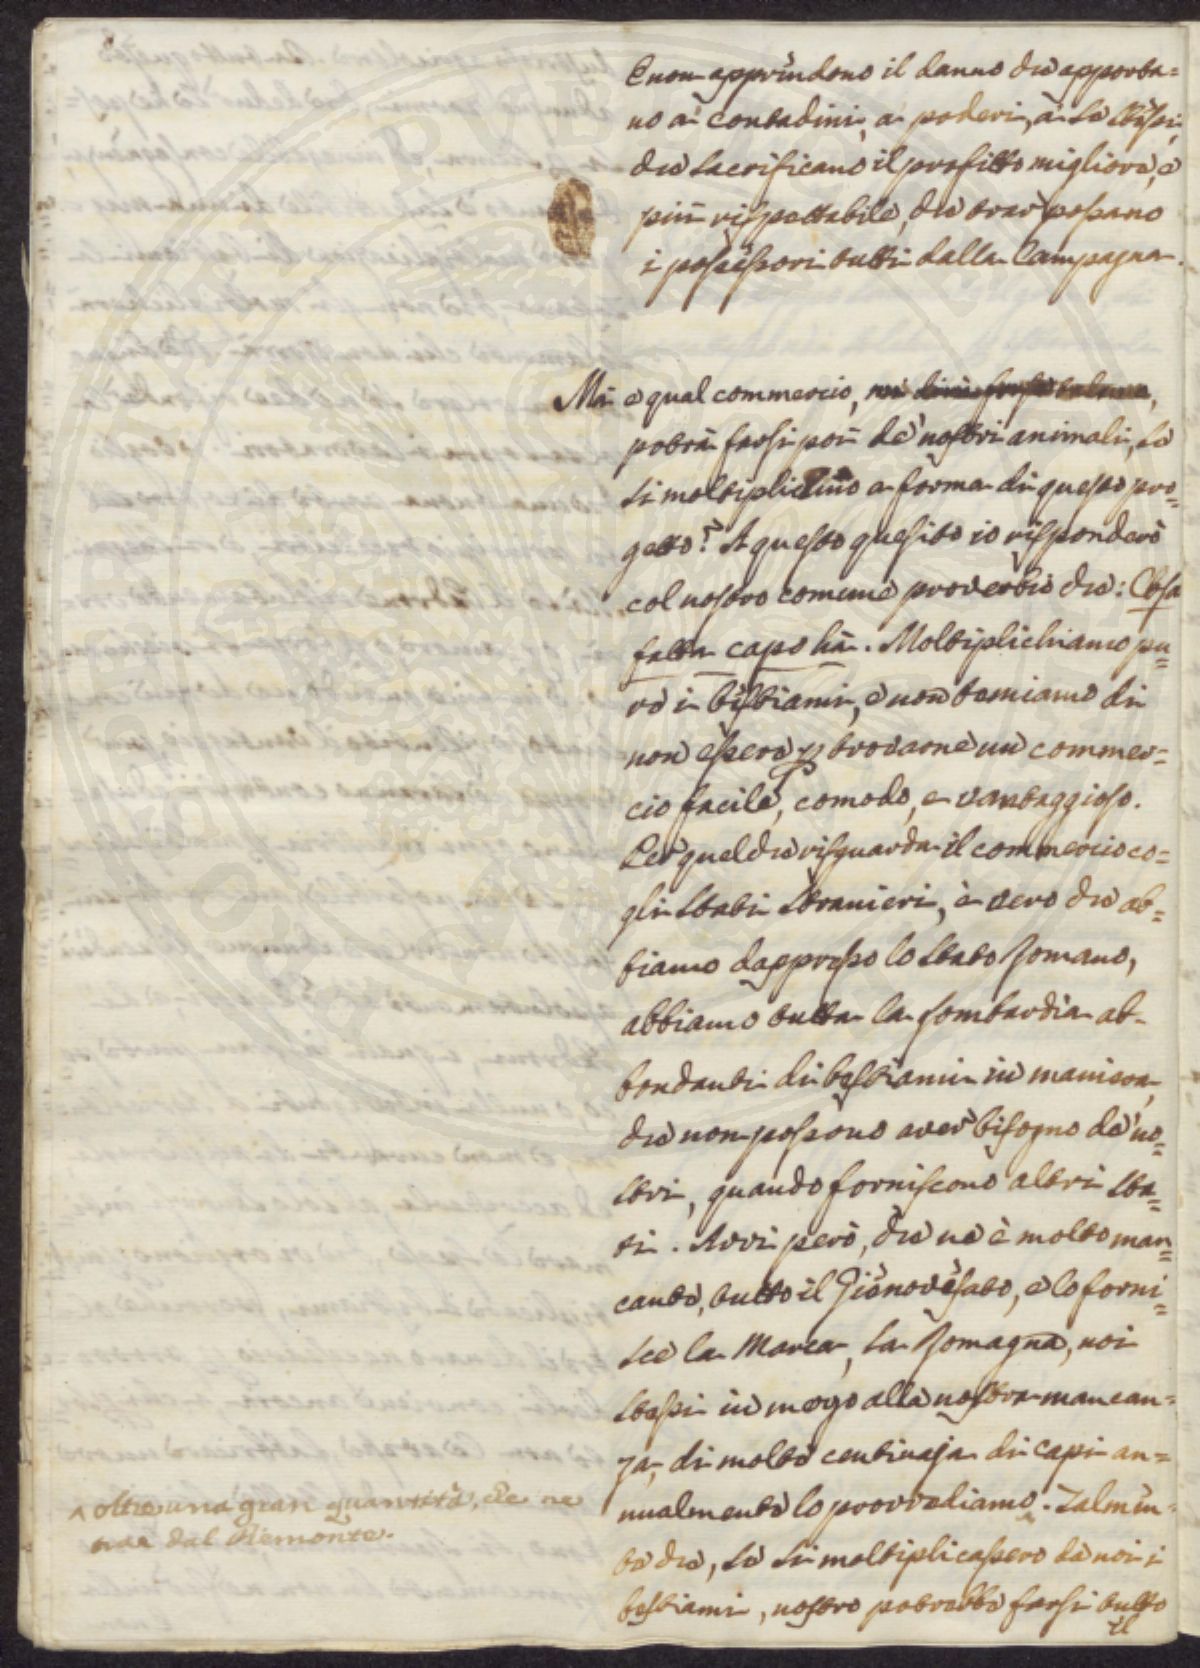 E non apprendono il danno che apporta=
no a' contadini, a' poderi, a' se stessi,
che sacrificano il profitto migliore, e
più rispettabile, che trar possano
i possessori tutti dalla Campagna.
Ma e qual commercio,
potrà farsi poi de' nostri animali, se
si moltiplichino a forma di questo pro=
getto? A questo quesito io risponderò
col nostro comune proverbio che: Cosa
fatta capo hà. Moltiplichiamo pu=
re i bestiami, e non temiamo di
non essere per trovarne un commer=
cio facile, comodo, e vantaggioso.
Per quel che risguarda il commercio co=
gli Stati Stranieri, è vero che ab=
biamo dappresso lo Stato Romano,
abbiamo tutta la Lombardia ab=
bondanti di bestiami in maniera,
che non possono aver bisogno de' no=
stri, quando forniscono altri Sta=
ti. Avvi però, che ne è molto man=
cante, tutto il Gienovesato, e lo forni=
sce la Marca, la Romagna, noi
stessi in mezzo alla nostra mancan=
za, di molte centinaja di capi an=
nualmente lo provvediamo. Talmen=
te che, se si moltiplicassero da noi i
bestiami, nostro potrebbe farsi tutto
il
^ oltre una gran quantità, che ne
trae dal Piemonte.